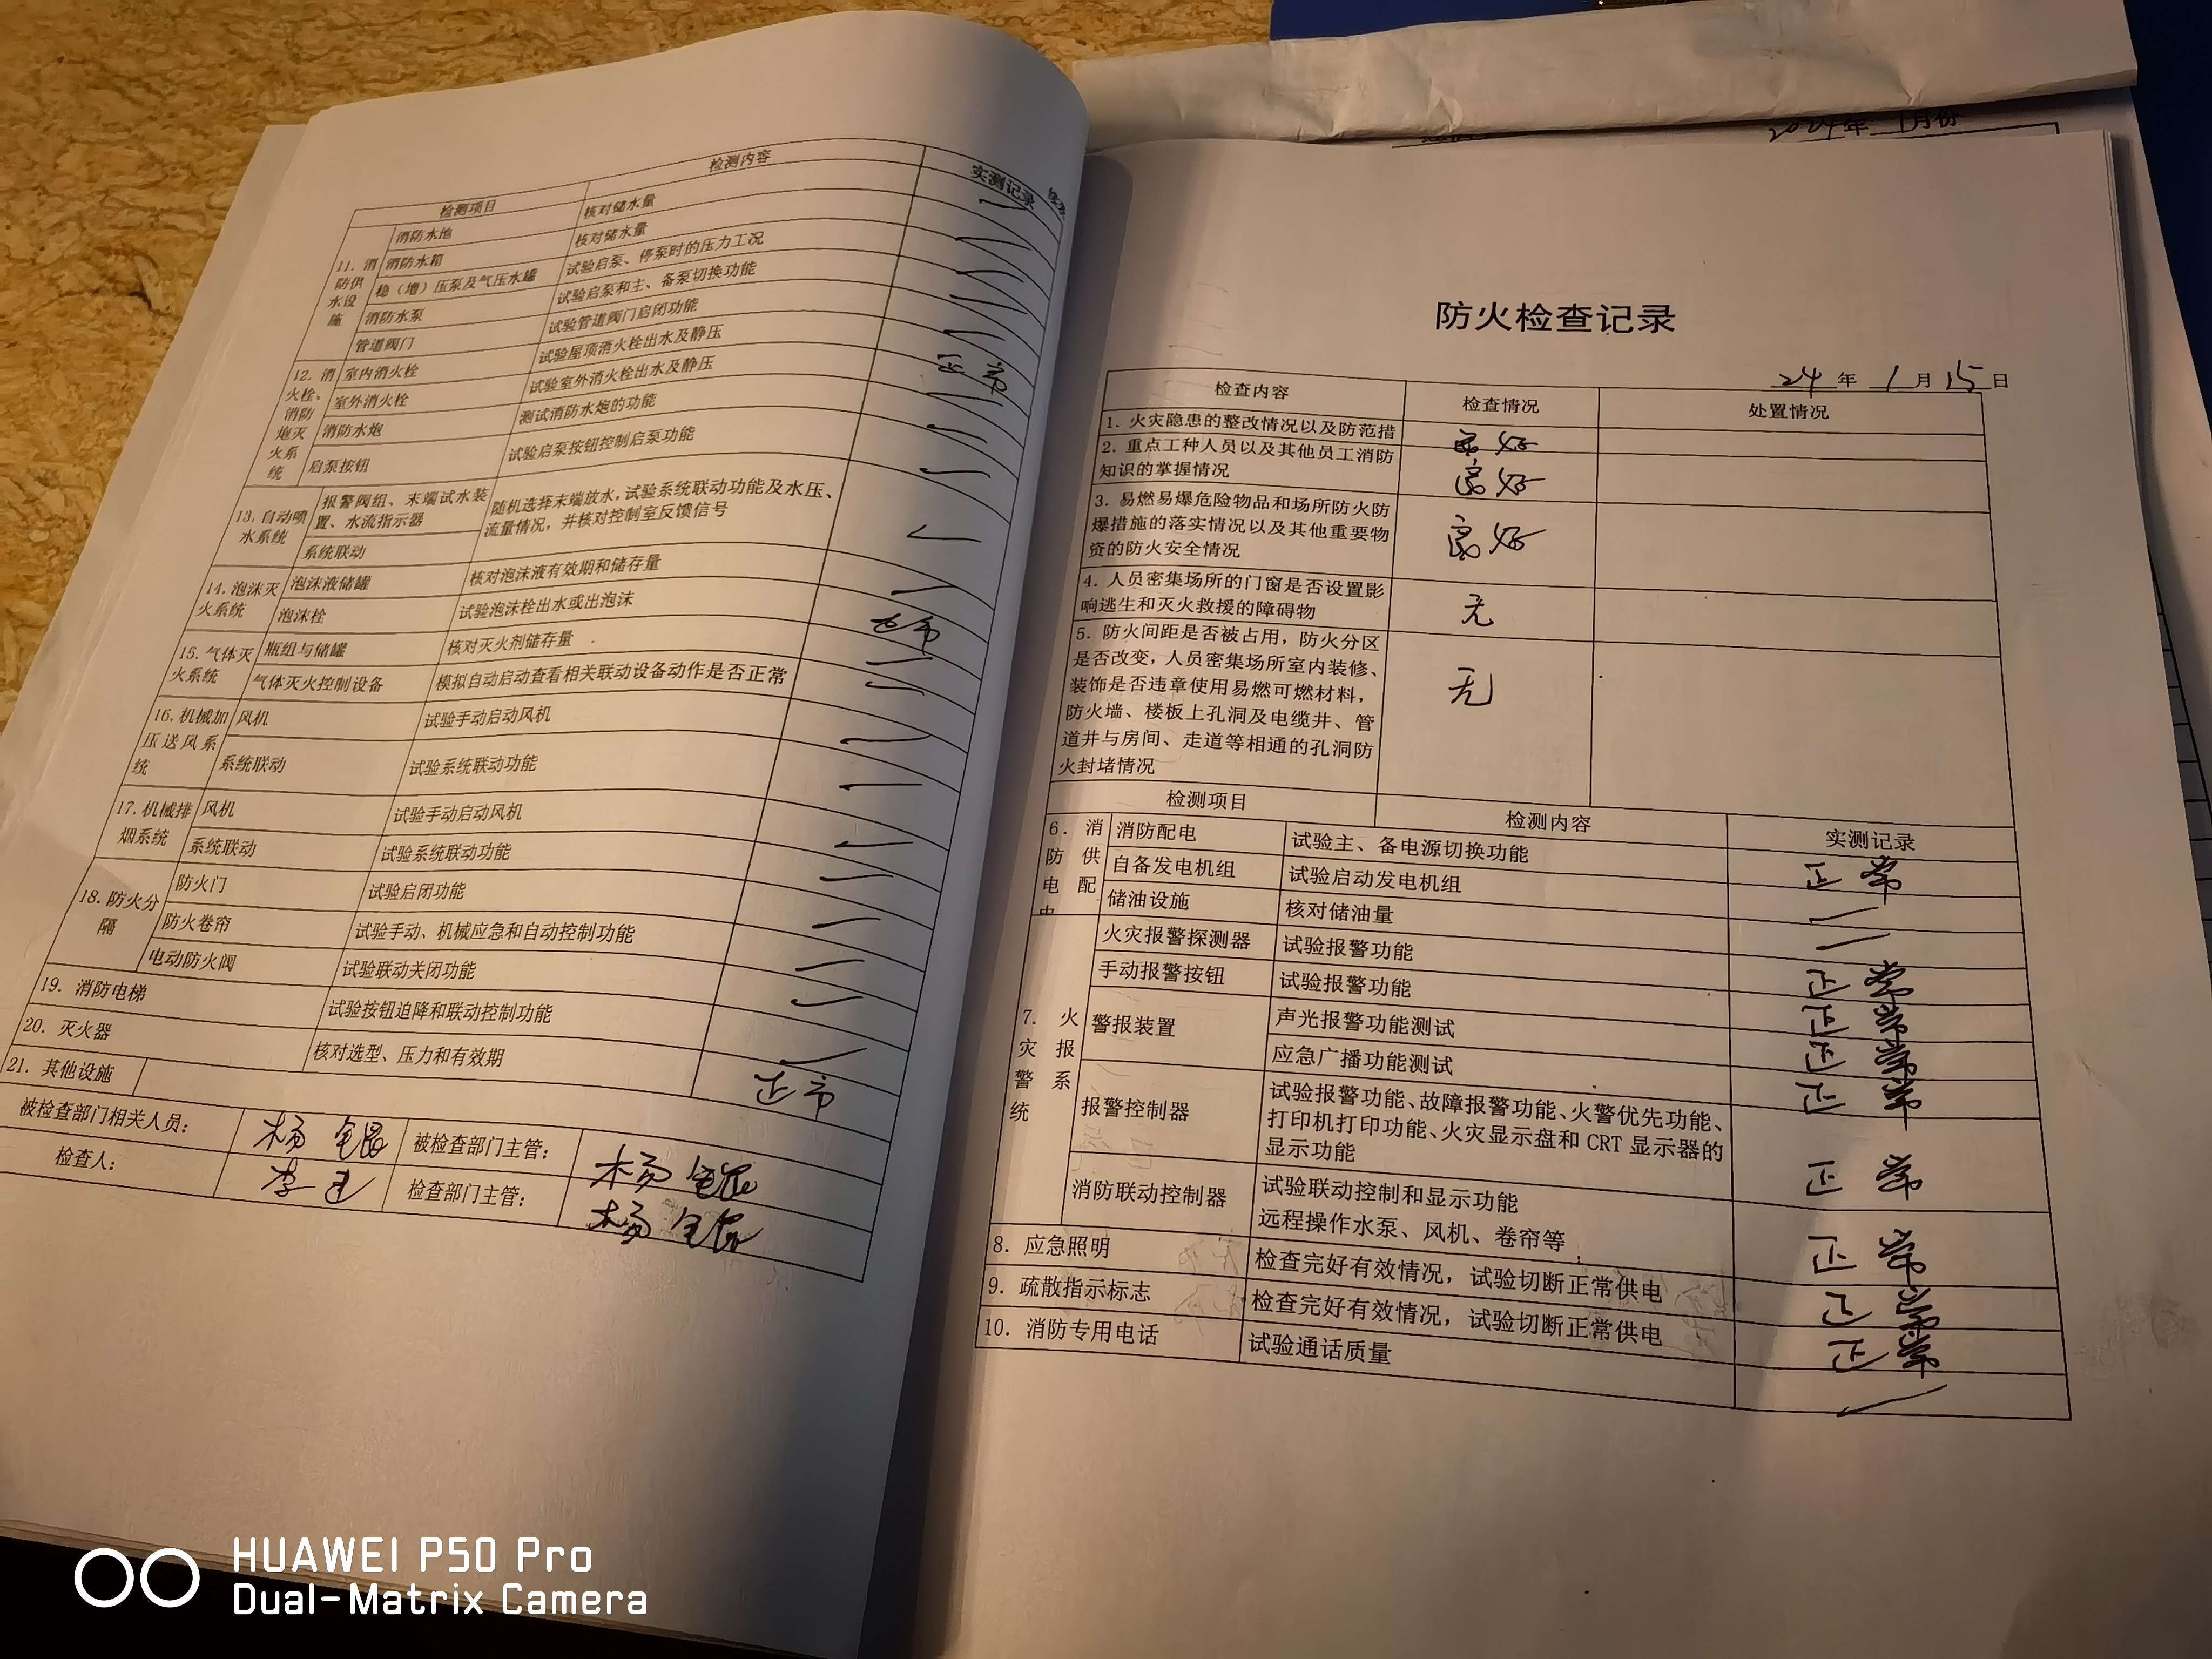 检测项目 检测内容 实测记录
11. 消防供水设施 消防水池 核对储水量
消防水箱 核对储水量
稳（增）压泵及气压水罐 试验启泵、停泵时的压力工况
消防水泵 试验启泵和主、备泵切换功能
管道阀门 试验管道阀门启闭功能
12. 消火栓、消防炮灭火系统 室内消火栓 试验屋顶消火栓出水及静压 正常
室外消火栓 试验室外消火栓出水及静压
消防水炮 测试消防水炮的功能
启泵按钮 试验启泵按钮控制启泵功能
13. 自动喷水系统 报警阀组、末端试水装置、水流指示器 随机选择末端放水，试验系统联动功能及水压、流量情况，并核对控制室反馈信号
系统联动
14. 泡沫灭火系统 泡沫液储罐 核对泡沫液有效期和储存量
泡沫栓 试验泡沫栓出水或出泡沫
15. 气体灭火系统 瓶组与储罐 核对灭火剂储存量 正常
气体灭火控制设备 模拟自动启动查看相关联动设备动作是否正常
16. 机械加压送风系统 风机 试验手动启动风机
系统联动 试验系统联动功能
17. 机械排烟系统 风机 试验手动启动风机
系统联动 试验系统联动功能
18. 防火分隔 防火门 试验启闭功能
防火卷帘 试验手动、机械应急和自动控制功能
电动防火阀 试验联动关闭功能
19. 消防电梯 试验按钮迫降和联动控制功能
20. 灭火器 核对选型、压力和有效期 正常
21. 其他设施
被检查部门相关人员： 杨 被检查部门主管： 杨
检查人： 李 检查部门主管： 杨
2024年 1月份
防火检查记录
24 年 1 月 15 日
检查内容 检查情况 处置情况
1. 火灾隐患的整改情况以及防范措 良好
2. 重点工种人员以及其他员工消防
知识的掌握情况 良好
3. 易燃易爆危险物品和场所防火防
爆措施的落实情况以及其他重要物 良好
资的防火安全情况
4. 人员密集场所的门窗是否设置影
响逃生和灭火救援的障碍物 无
5. 防火间距是否被占用，防火分区
是否改变，人员密集场所室内装修、
装饰是否违章使用易燃可燃材料， 无
防火墙、楼板上孔洞及电缆井、管
道井与房间、走道等相通的孔洞防
火封堵情况
检测项目 检测内容 实测记录
6. 消防供配电 消防配电 试验主、备电源切换功能 正常
自备发电机组 试验启动发电机组
储油设施 核对储油量
7. 火灾报警系统 火灾报警探测器 试验报警功能 正常
手动报警按钮 试验报警功能 正常
警报装置 声光报警功能测试 正常
应急广播功能测试 正常
报警控制器 试验报警功能、故障报警功能、火警优先功能、
打印机打印功能、火灾显示盘和 CRT 显示器的
显示功能 正常
消防联动控制器 试验联动控制和显示功能
远程操作水泵、风机、卷帘等 正常
8. 应急照明 检查完好有效情况，试验切断正常供电 正常
9. 疏散指示标志 检查完好有效情况，试验切断正常供电 正常
10. 消防专用电话 试验通话质量
HUAWEI P50 Pro
Dual-Matrix Camera